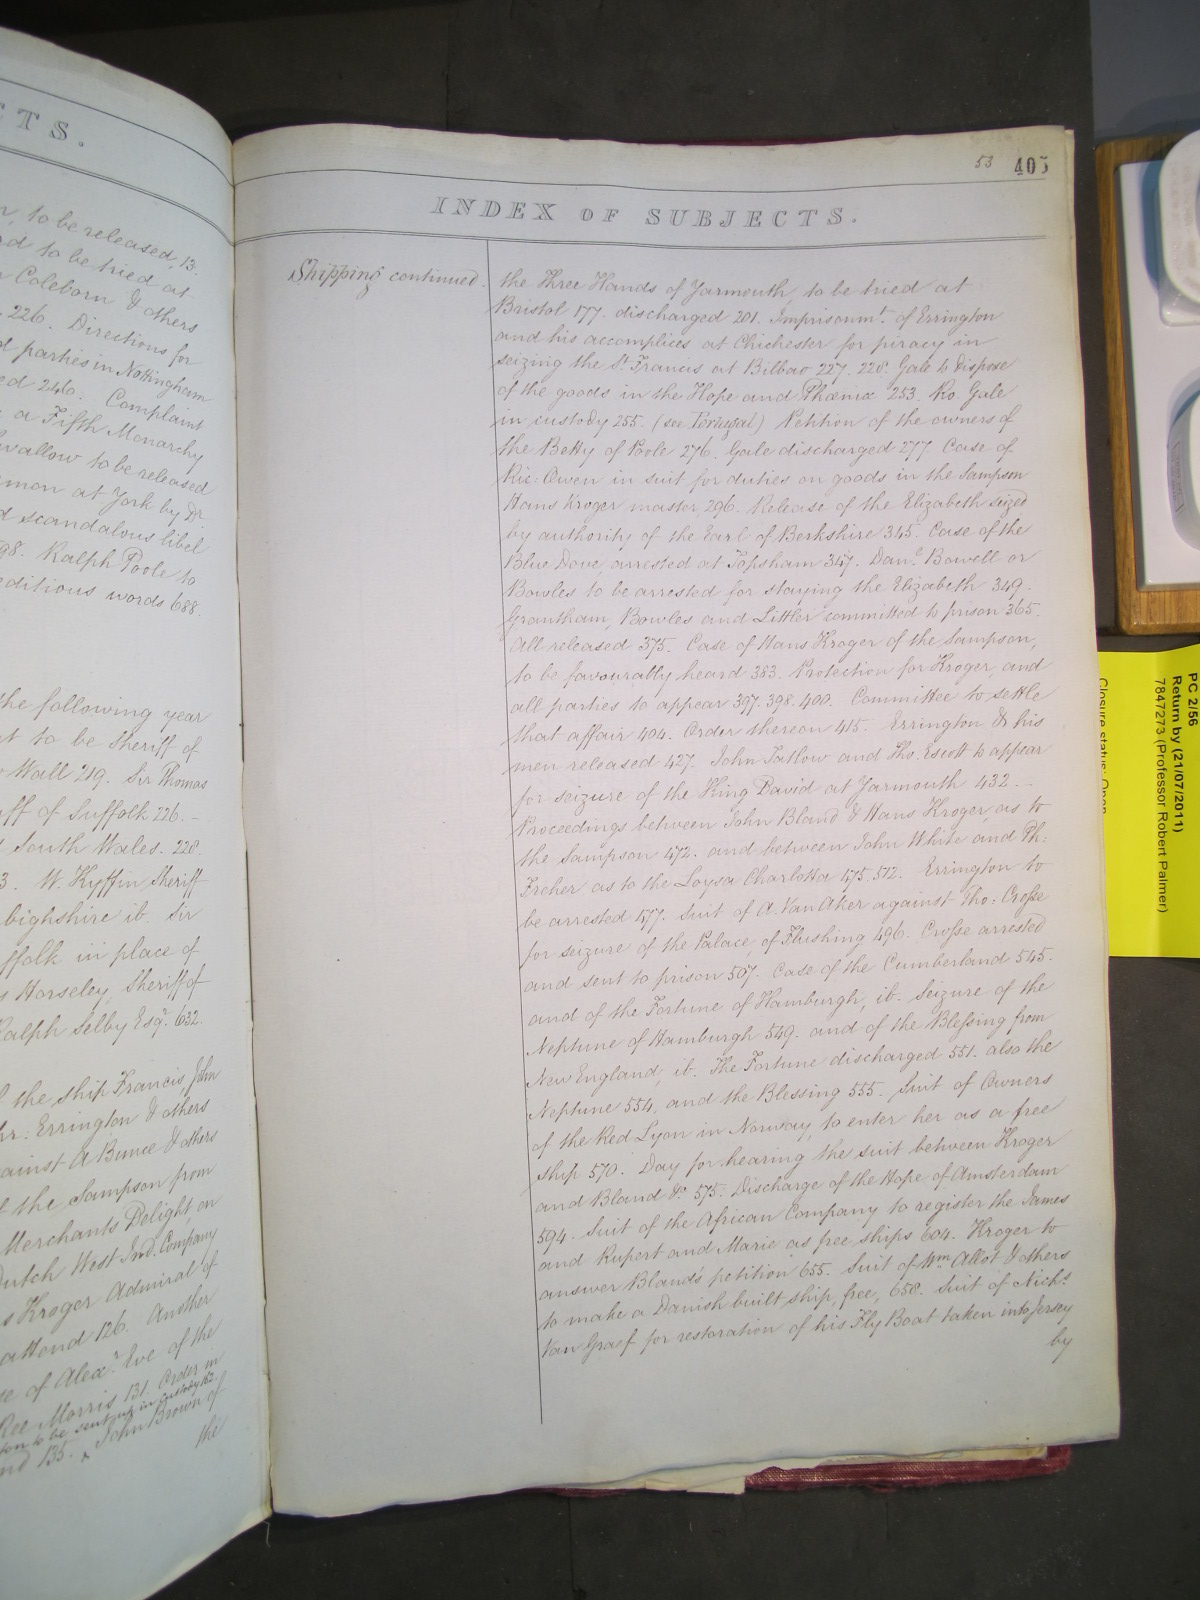 CTS.
to be released, 13.
rd to be tried at
Coleborn & others
226. Directions for
d parties in Nottingham
ed 246. Complaint
a Fifth Monarchy
wallow to be released
mon at York by Dr
d scandalous libel
98. Ralph Poole to
editious words 688.
the following year
t to be Sheriff of
Wall 219. Sir Thomas
ff of Suffolk 226.-
South Wales. 228.
3. W. Kyffin, Sheriff
bighshire ib. Sir
ffolk in place of
s Horseley, Sheriff of
Ralph Selby Esqr. 632.
the ship Francis, John
hr: Errington & others
ainst A Bunce & others
f the Sampson from
Merchants Delight, on
utch West Ind. Company
s Kroger Admiral of
attend 126. Another
se of Alexr. Eve of the
Ree Morris 131. Order in
ton to be sent up in custody
nd 135. John Brown of
the
53 405
INDEX OF SUBJECTS.
Shipping continued.
the Three Hands of Yarmouth, to be tried at
Bristol 177. discharged 201. Imprisonmt. of Errington
and his accomplices at Chichester for piracy in
seizing the St. Francis at Bilbao 227. 228. Gale to dispose
of the goods in the Hope and Phœnix 253. Ro. Gale
in custody 255. (see Portugal) Petition of the owners of
the Betty of Poole 276. Gale discharged 277. Case of
Ric: Owen in suit for duties on goods in the Sampson
Hans Kroger master 296. Release of the Elizabeth seized
by authority of the Earl of Berkshire 345. Case of the
Blue Dove, arrested at Topsham 347. Danl. Bowell or
Bowles to be arrested for staying the Elizabeth 349.
Grantham, Bowles and Littler committed to prison 365.
All released 375. Case of Hans Kroger of the Sampson,
to be favourably heard 383. Protection for Kroger, and
all parties to appear 397. 398. 400. Committee to settle
that affair 404. Order thereon 415. Errington & his
men released 427. John Tatlow and Tho. Escott to appear
for seizure of the King David at Yarmouth 432.-
Proceedings between John Bland & Hans Kroger, as to
the Sampson 472. and between John White and Ph:
Freher as to the Loysa Charlotta 475. 572. Errington to
be arrested 477. Suit of A. Van Aker against Tho: Crosse
for seizure of the Palace, of Flushing 496. Crosse arrested
and sent to prison 507. Case of the Cumberland 545.
and of the Fortune of Hamburgh, ib. Seizure of the
Neptune of Hamburgh 549. and of the Blessing from
New England, ib. The Fortune discharged 551. also the
Neptune 554, and the Blessing 555. Suit of Owners
of the Red Lyon in Norway, to enter her as a free
ship 570. Day for hearing the suit between Kroger
and Bland &c. 575. Discharge of the Hope of Amsterdam
594. Suit of the African Company to register the James
and Rupert and Marie as free ships 604. Kroger to
answer Bland's petition 655. Suit of Wm Allot & others
to make a Danish built ship, free, 658. Suit of Nichs.
Van Graef for restoration of his Fly Boat taken into Jersey
by
PC 2/56
Return by (21/07/2011)
7847273 (Professor Robert Palmer)
Closure status: Open